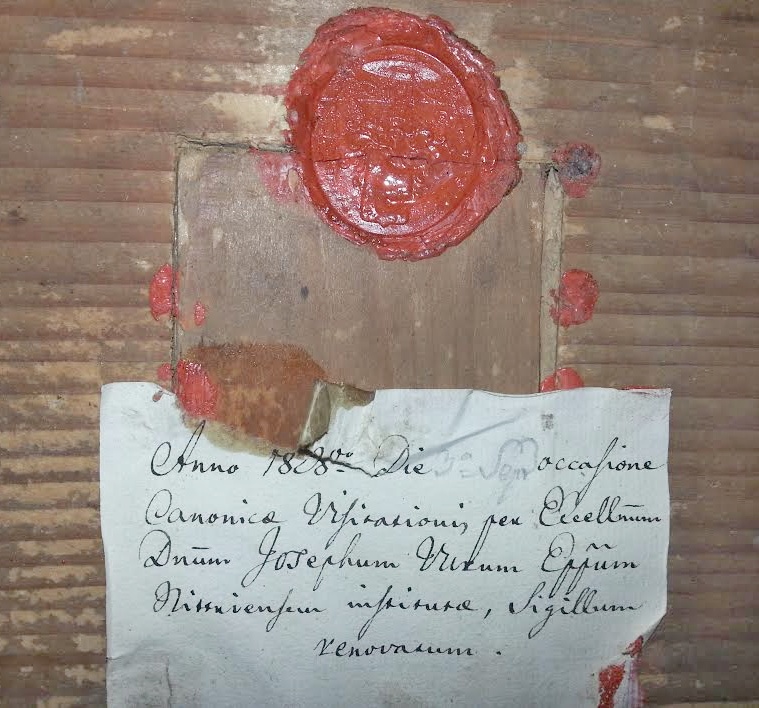 Anno 1828vo Die 3a Sep occasione
Canonicæ Visitationis per Excellm̄um
Dn̄um Josephum Vurum Epp̄um
Nittriensem institutæ, Sigillum
renovatum .